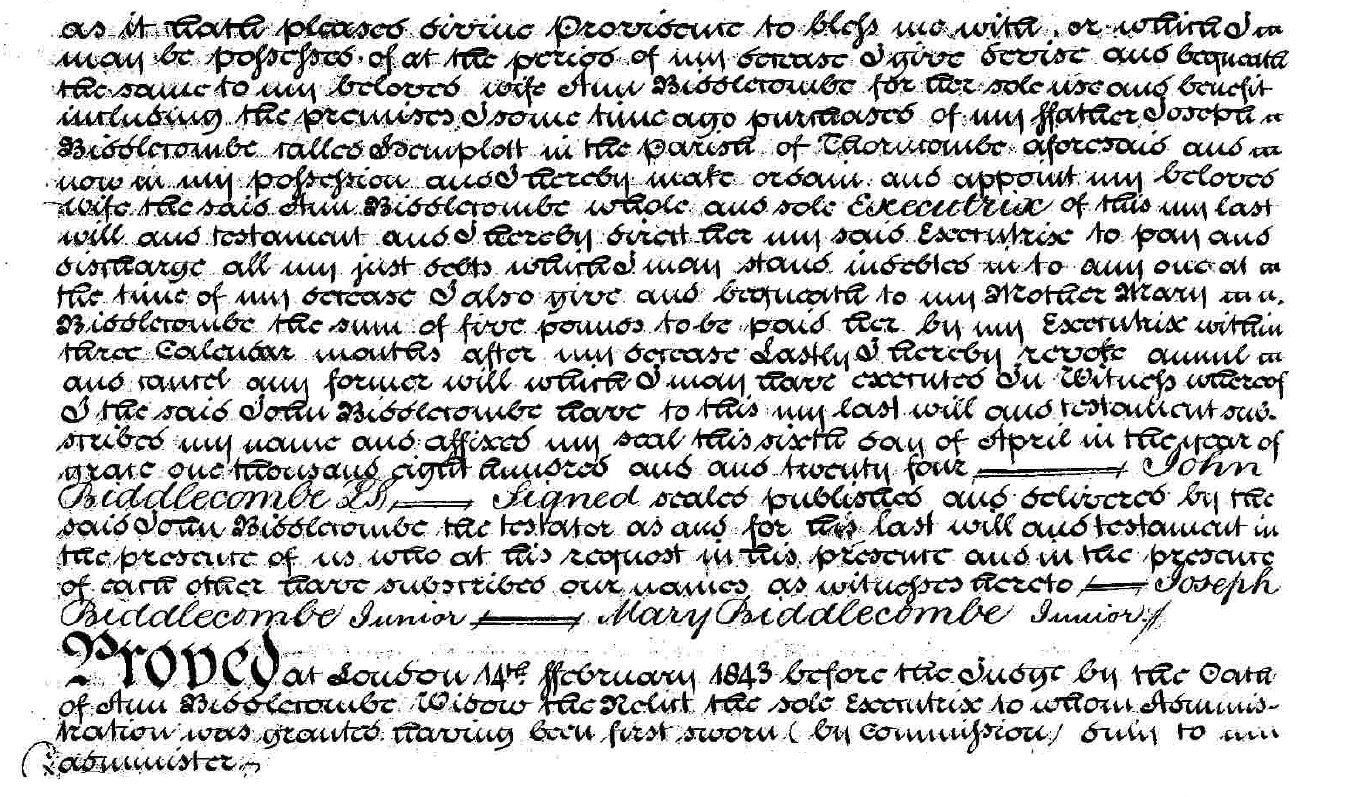 as it hath pleased divine Providence to bless me with or which I
may be possessed of at the period of my decease I give devise and bequeath
the same to my beloved wife Ann Biddlecombe for her sole use and benefit
including the premises I some time ago purchased of my ffather Joseph
Biddlecombe called Hemplott in the Parish of Thorncombe aforesaid and
now in my possession and I hereby make ordain and appoint my beloved
wife the said Ann Biddlecombe whole and sole Executrix of this my last
will and testament and I hereby direct her my said Executrix to pay and
discharge all my just debts which I may stand indebted in to any one at
the time of my decease I also give and bequeath to my Mother Mary
Biddlecombe the sum of five pounds to be paid her by my Executrix within
three Calendar months after my decease Lastly I hereby revoke annul
and cancel any former will which I may have executed In Witness whereof
I the said John Biddlecombe have to this my last will and testament sub-
scribed my name and affixed my seal this sixth day of April in the year of
grace one thousand eight hundred and and twenty four — John
Biddlecombe LS — Signed sealed published and delivered by the
said John Biddlecombe the testator as and for his last will and testament in
the presence of us who at his request in his presence and in the presence
of each other have subscribed our names as witnesses hereto — Joseph
Biddlecombe Junior — Mary Biddlecombe Junior
Proved at London 14th ffebruary 1843 before the Judge by the Oath
of Ann Biddlecombe Widow the Relict the sole Executrix to whom Adminis-
tration was granted having been first sworn (by Commission) duly to
administer